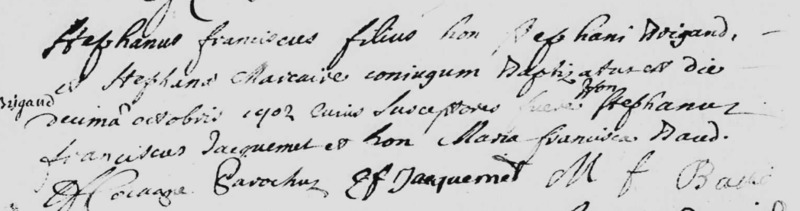 Stephanus franciscus filius hon Stephani Brigand,
et Stephanae Marcaire coniugum Baptizatus est die
Brigand
decimâ octobris 1702 cuius susceptores fuere hon Stephanus
franciscus Jacquemet et hon Maria francisca Baud.
Parochus Ef Jacquemet M f Baud